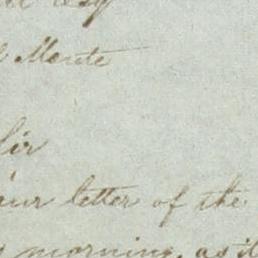 Esq
Monte
Sir
our letter of the
morning, as it